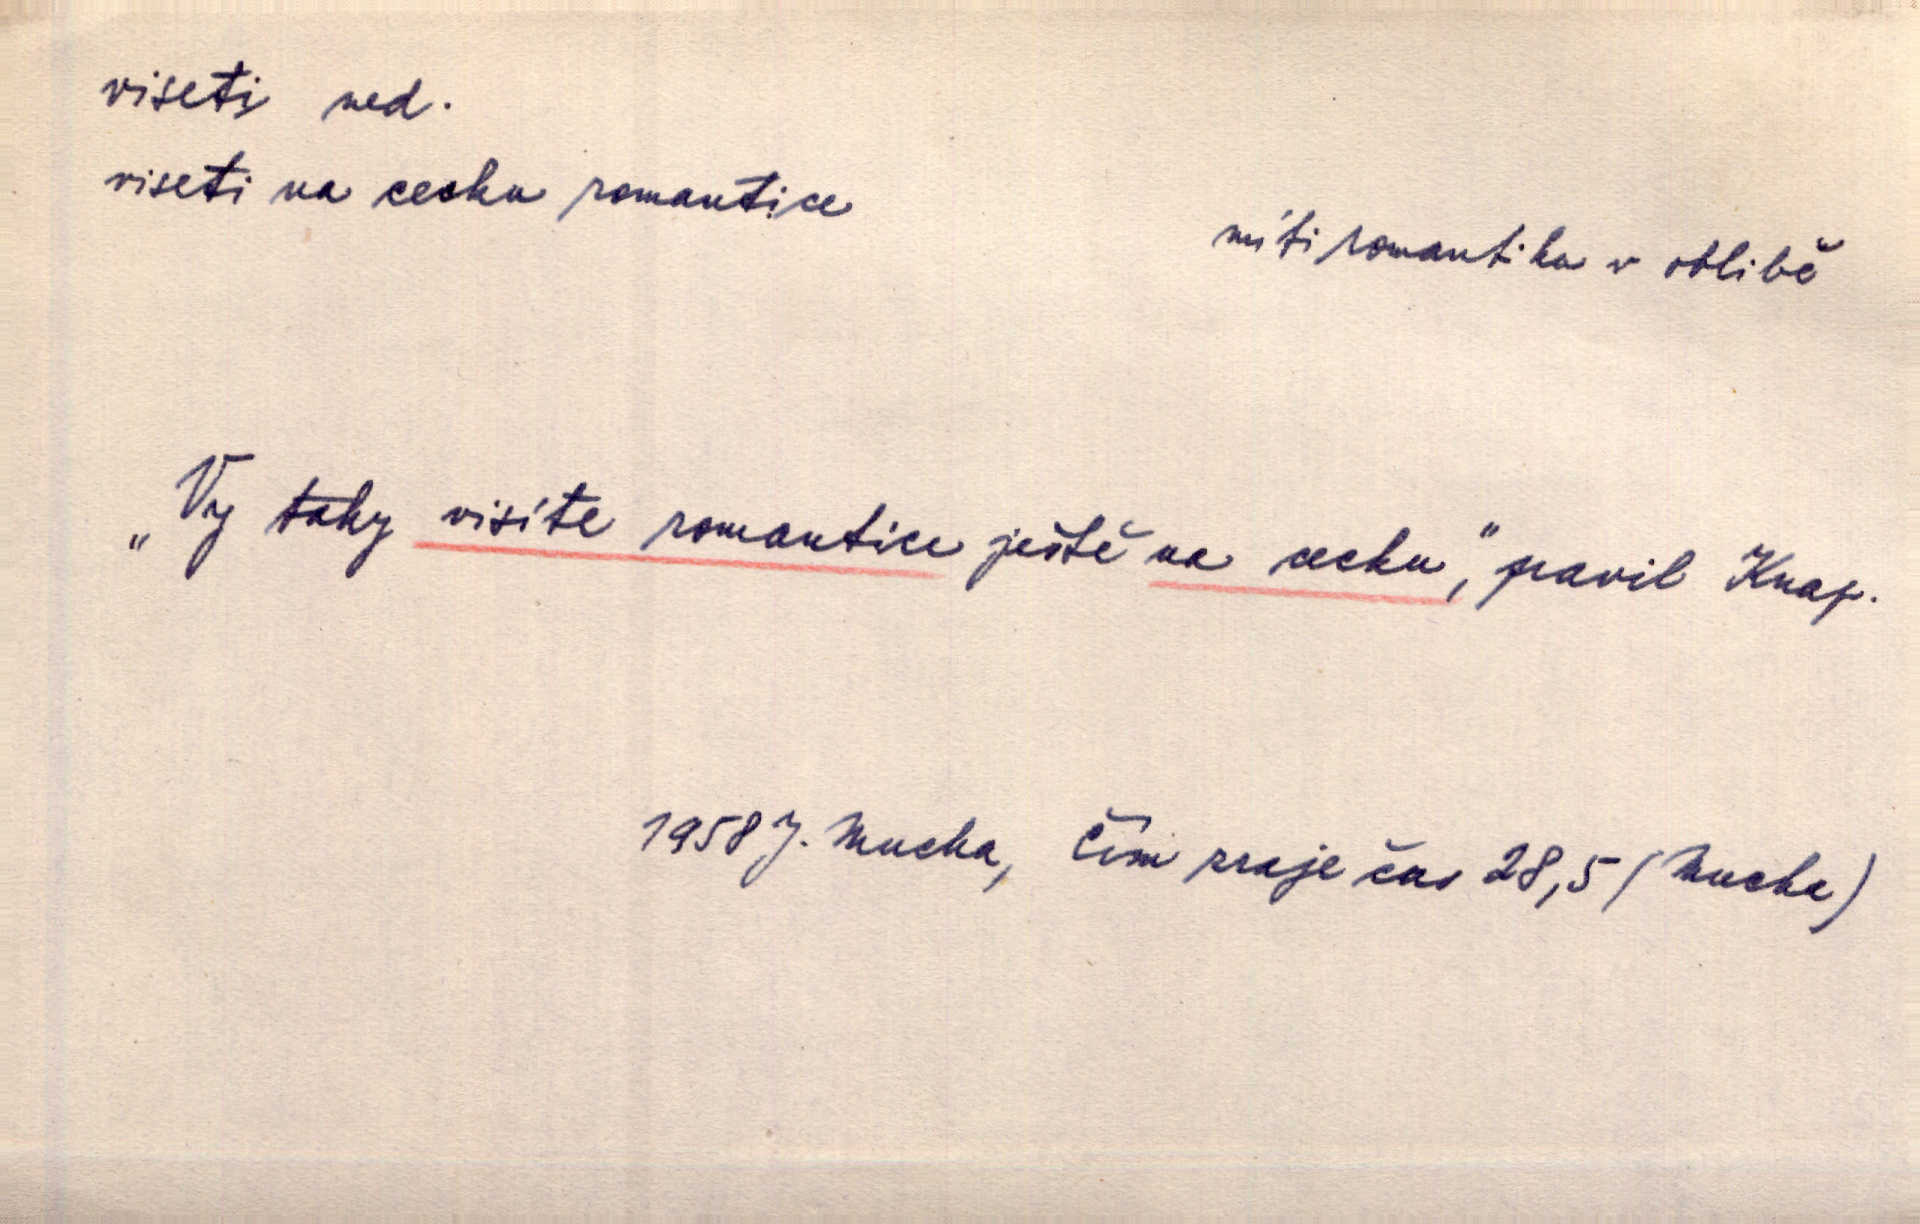 viseti ned.
viseti na cecku romantice
míti romantiku v oblibě
„Vy taky visíte romantice ještě na cecku,“ pravil Knap.
1958 J. Mucha, Čím zraje čas 28,5 (Mucha)